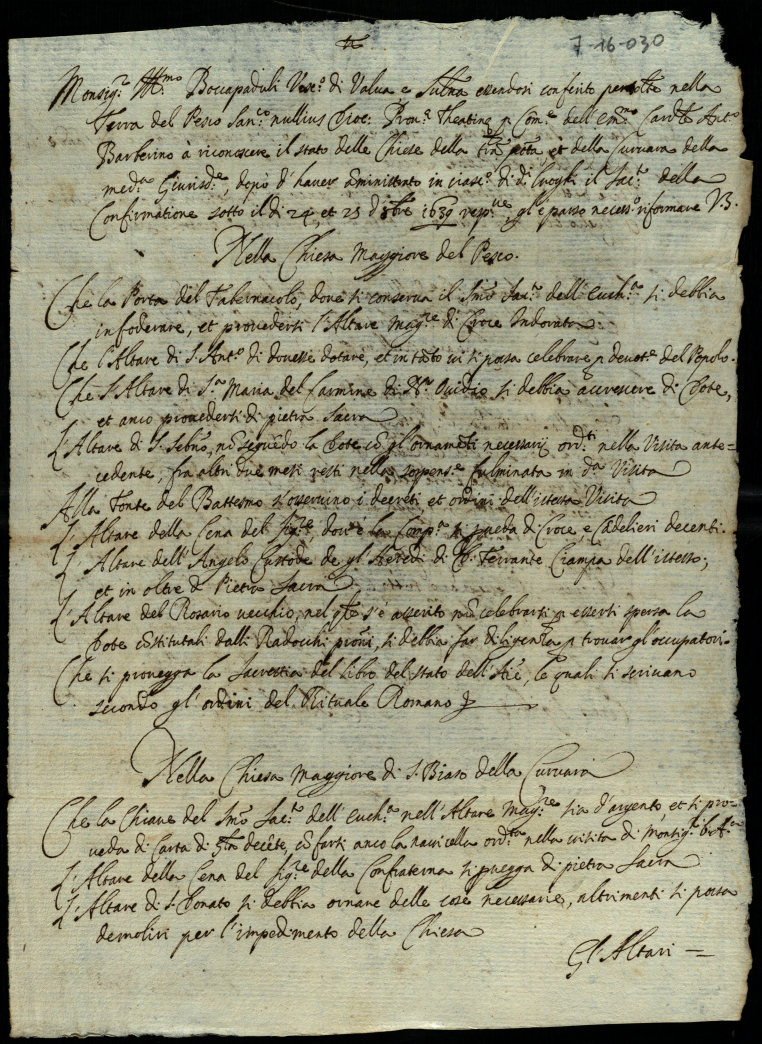 7-16-030
Monsig.r Ill.mo Boccapaduli Vesc.o di Valua e Sulmona essendosi conferito nella
Terra del Pesco San.co nullius Dioc. Prou.e Theatina p Com.e dell'Em.mo Card.le Ant.o
Barberino à riconoscere il stato delle Chiese della et della Curuara della
med.a Giurisd.e, dopò d'hauer amministrato in ciasc.o di d.i luoghi il Sac.to della
Confirmatione sotto il di 24, et 25 d' 1639 resp.ue, gl'è parso necess.o riformare V3.
Nella Chiesa Maggiore del Pesco.
Che la Porta del Tabernacolo, doue si conserua il Smo Sac.to dell'Euch.a si debbia
infoderare, et prouedersi l'Altare Mag.re di Croce Indorata
Che l'Altare di S. Ant.o di douesse dotare, et in tãto ui si possa celebrare p deuot.e del Popolo.
Che l'Altare di S.ta Maria del Carmine di Ouidio si debbia accrescere di Dote,
et anco prouedersi di pietra sacra
L'Altare di S. Sebno, nõ seguẽdo la Dote cõ gl'ornamẽti necessarij ord.ti nella Visita ante=
cedente, fra altri due mesi resti nella sospens.e fulminata in d.a Visita
Alla Fonte del Battesmo s'osseruino i decreti, et ordini dell'istessa Visita
L'Altare della Cena del Sig.re, dou'è la Comp.a si ꝓueda di Croce, e Cãdelieri decenti.
L'Altare dell'Angelo Custode de gl'Heredi di D. Ferrante Ciampa dell'istesso;
et in oltre d Pietra Sacra
L'Altare del Rosario uecchio, nel q.le s'è asserito nõ celebrarsi p essersi spersa la
Dote cõstitutali dalli Radocchi si debbia far diligenza p trouar gl'occupatori.
Che si prouegga la Sacrestia del libro del stato dell'Aĩe, le quali si scriuano
secondo gl'ordini del Rituale Romano
Nella Chiesa Maggiore di S. Biaso della Curuara
Che la Chiaue del Smo Sac.to dell'Euch.a nell'Altare Mag.re sia d'argento, et si pro=
ueda di Carta di Gla decẽte, cõ farsi anco la nauicella ord.ta nella uisita di Monsig.r
L'Altare della Cena del Sig.re della Confraterna si ꝓuegga di pietra Sacra
L'Altare di S. Donato si debbia ornare delle cose necessarie, altrimenti si possa
demolire per l'impedimento della Chiesa
Gl'Altari =